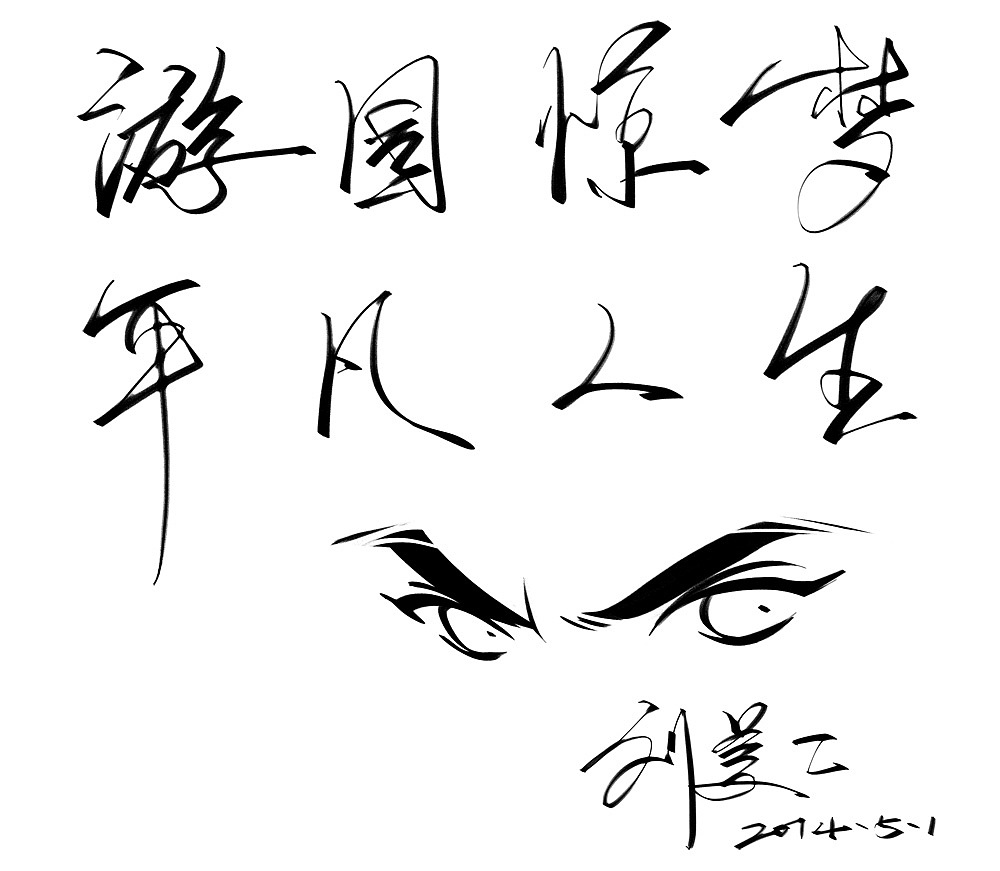 游园惊梦
平凡人生
刘美工
2014-5-1